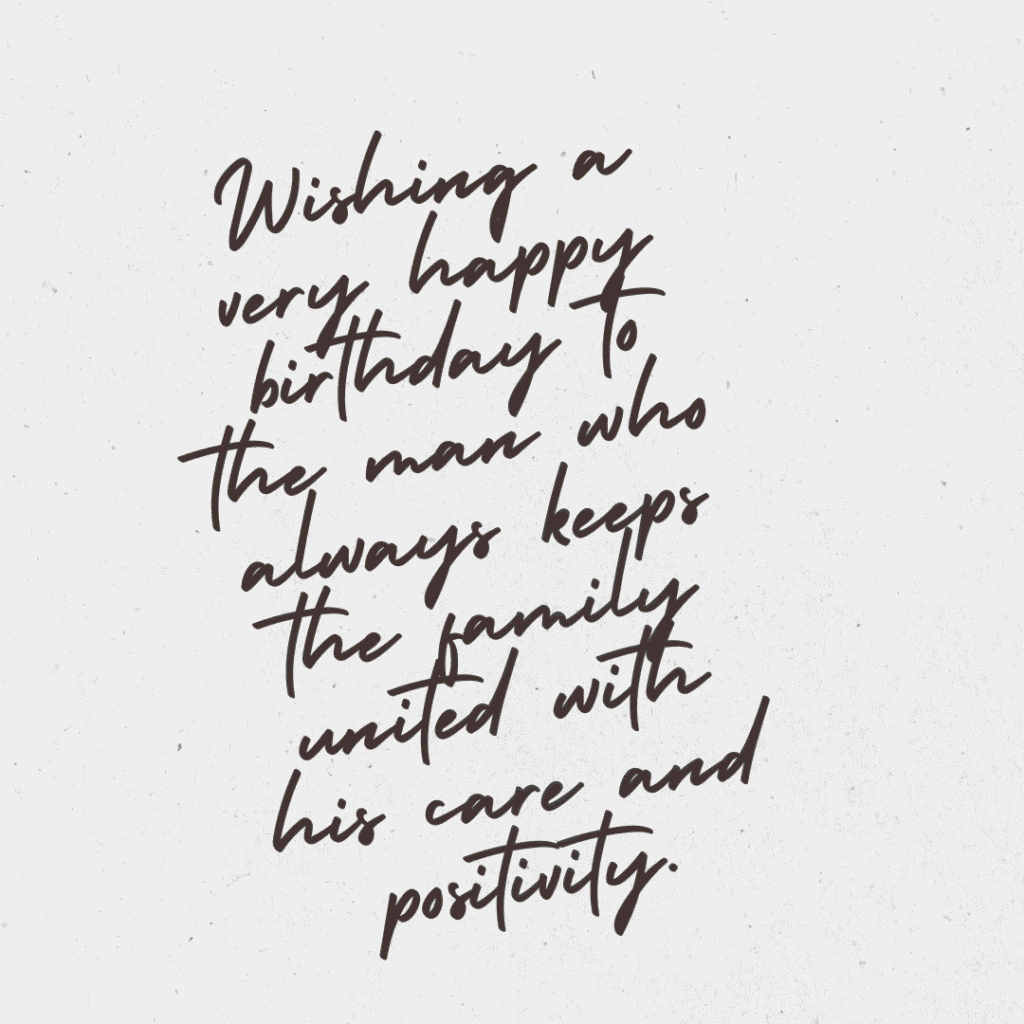 Wishing a
very happy
birthday to
the man who
always keeps
the family
united with
his care and
positivity.